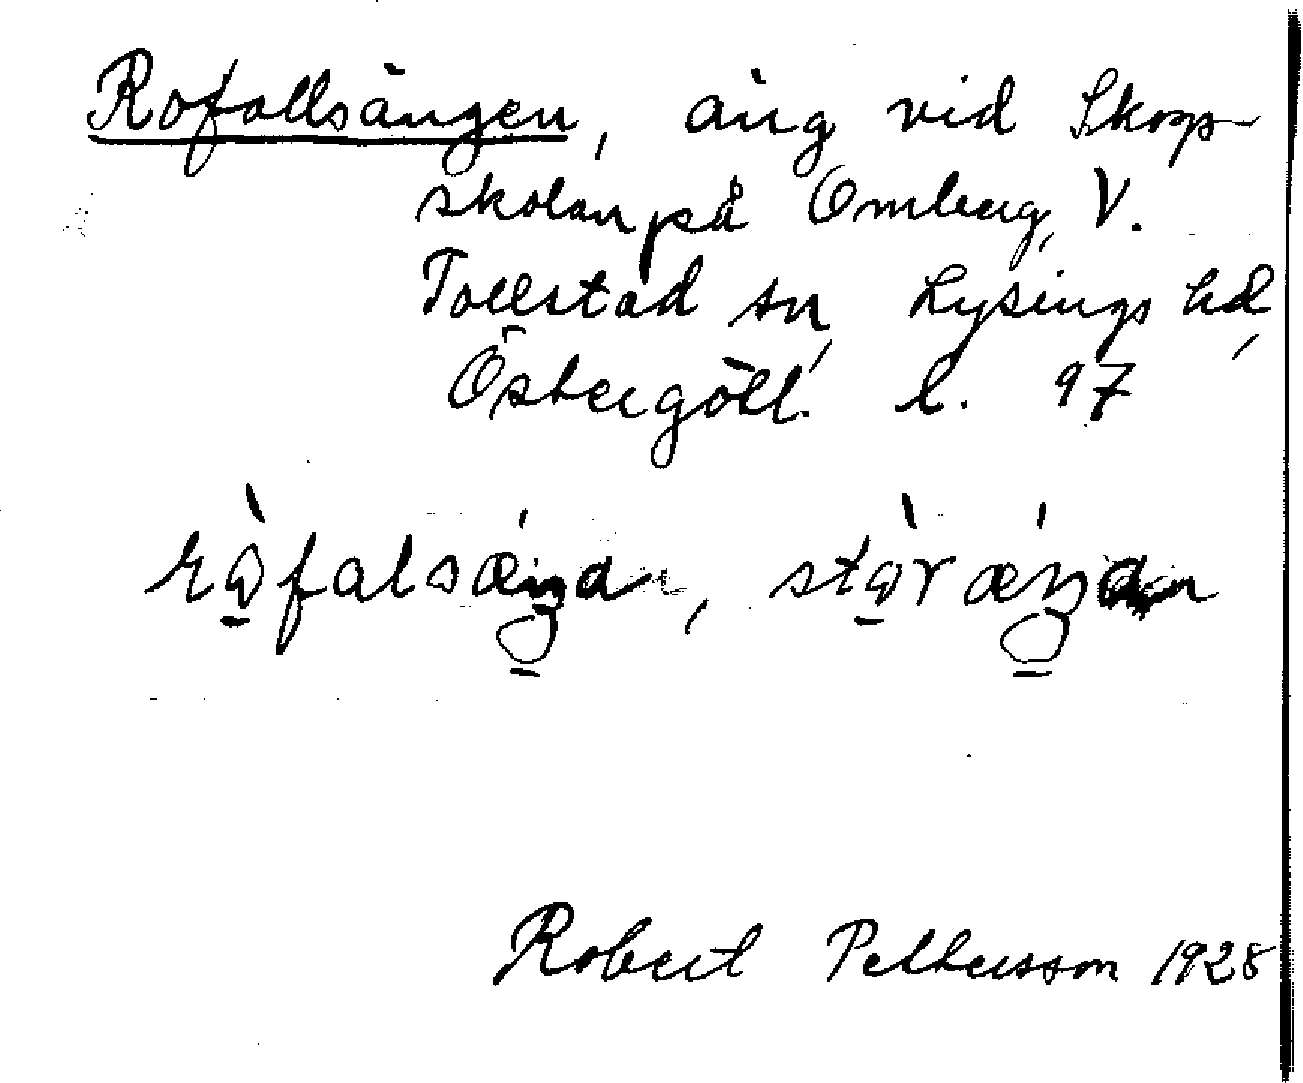 Rofallsängen, äng vid Skogs-
skolan på Omberg, V.
Tollstad sn, Lysings hd,
Östergötl. l. 97
Robert Pettersson 1928